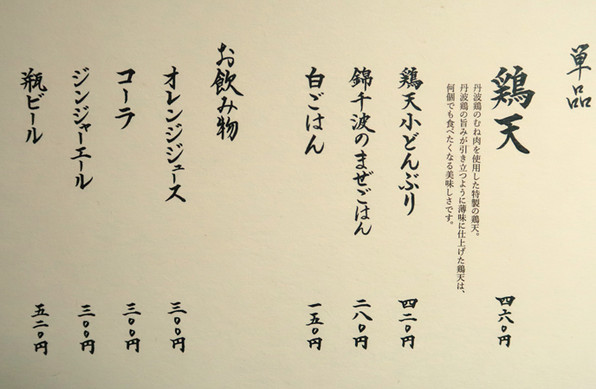 単品
鶏天
四六〇円
丹波鶏のむね肉を使用した特製の鶏天。
丹波鶏の旨みが引き立つように薄味に仕上げた鶏天は、
何個でも食べたくなる美味しさです。
鶏天小どんぶり
四二〇円
錦千波のまぜごはん
二八〇円
白ごはん
一五〇円
お飲み物
オレンジジュース
三〇〇円
コーラ
三〇〇円
ジンジャーエール
三〇〇円
瓶ビール
五二〇円